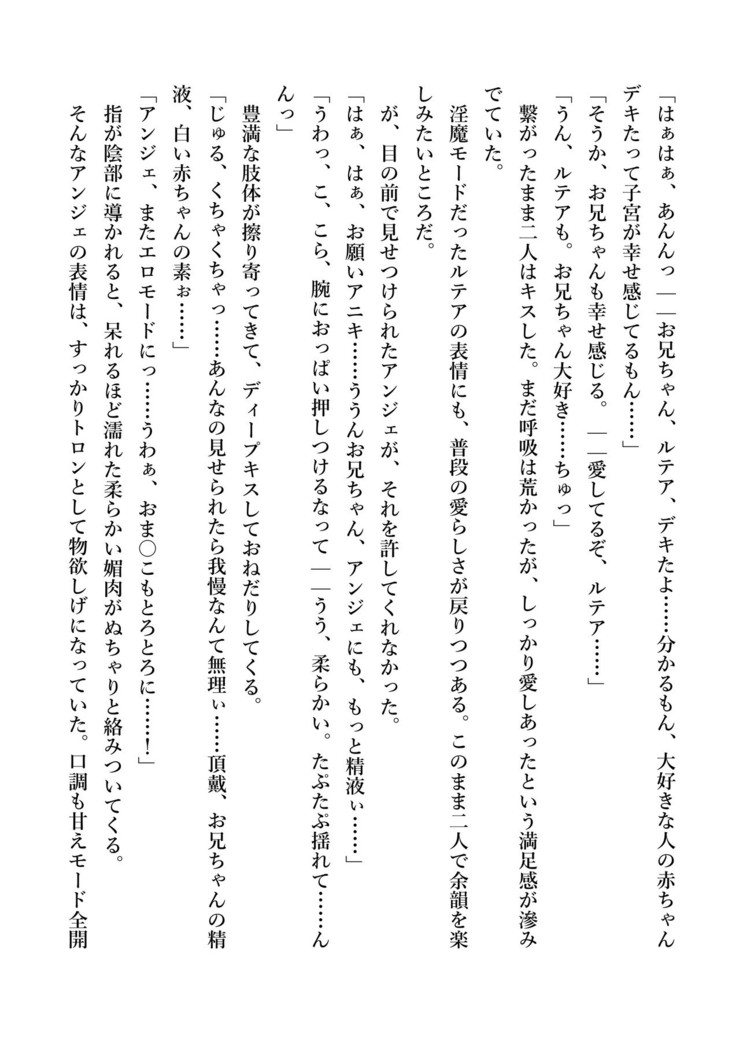 「はぁはぁ、あんんっ――お兄ちゃん、ルテア、デキたよ……分かるもん、大好きな人の赤ちゃん
デキたって子宮が幸せ感じてるもん……」
「そうか、お兄ちゃんも幸せ感じる。――愛してるぞ、ルテア……」
「うん、ルテアも。お兄ちゃん大好き……ちゅっ」
繋がったまま二人はキスした。まだ呼吸は荒かったが、しっかり愛しあったという満足感が滲み
でていた。
淫魔モードだったルテアの表情にも、普段の愛らしさが戻りつつある。このまま二人で余韻を楽
しみたいところだ。
が、目の前で見せつけられたアンジェが、それを許してくれなかった。
「はぁ、はぁ、お願いアニキ……ううんお兄ちゃん、アンジェにも、もっと精液ぃ……」
「うわっ、こ、こら、腕におっぱい押しつけるなって――うう、柔らかい。たぷたぷ揺れて……ん
んっ」
豊満な肢体が擦り寄ってきて、ディープキスしておねだりしてくる。
「じゅる、くちゃくちゃっ……あんなの見せられたら我慢なんて無理ぃ……頂戴、お兄ちゃんの精
液、白い赤ちゃんの素ぉ……」
「アンジェ、またエロモードにっ……うわぁ、おま〇こもとろとろに……！」
指が陰部に導かれると、呆れるほど濡れた柔らかい媚肉がぬちゃりと絡みついてくる。
そんなアンジェの表情は、すっかりトロンとして物欲しげになっていた。口調も甘えモード全開